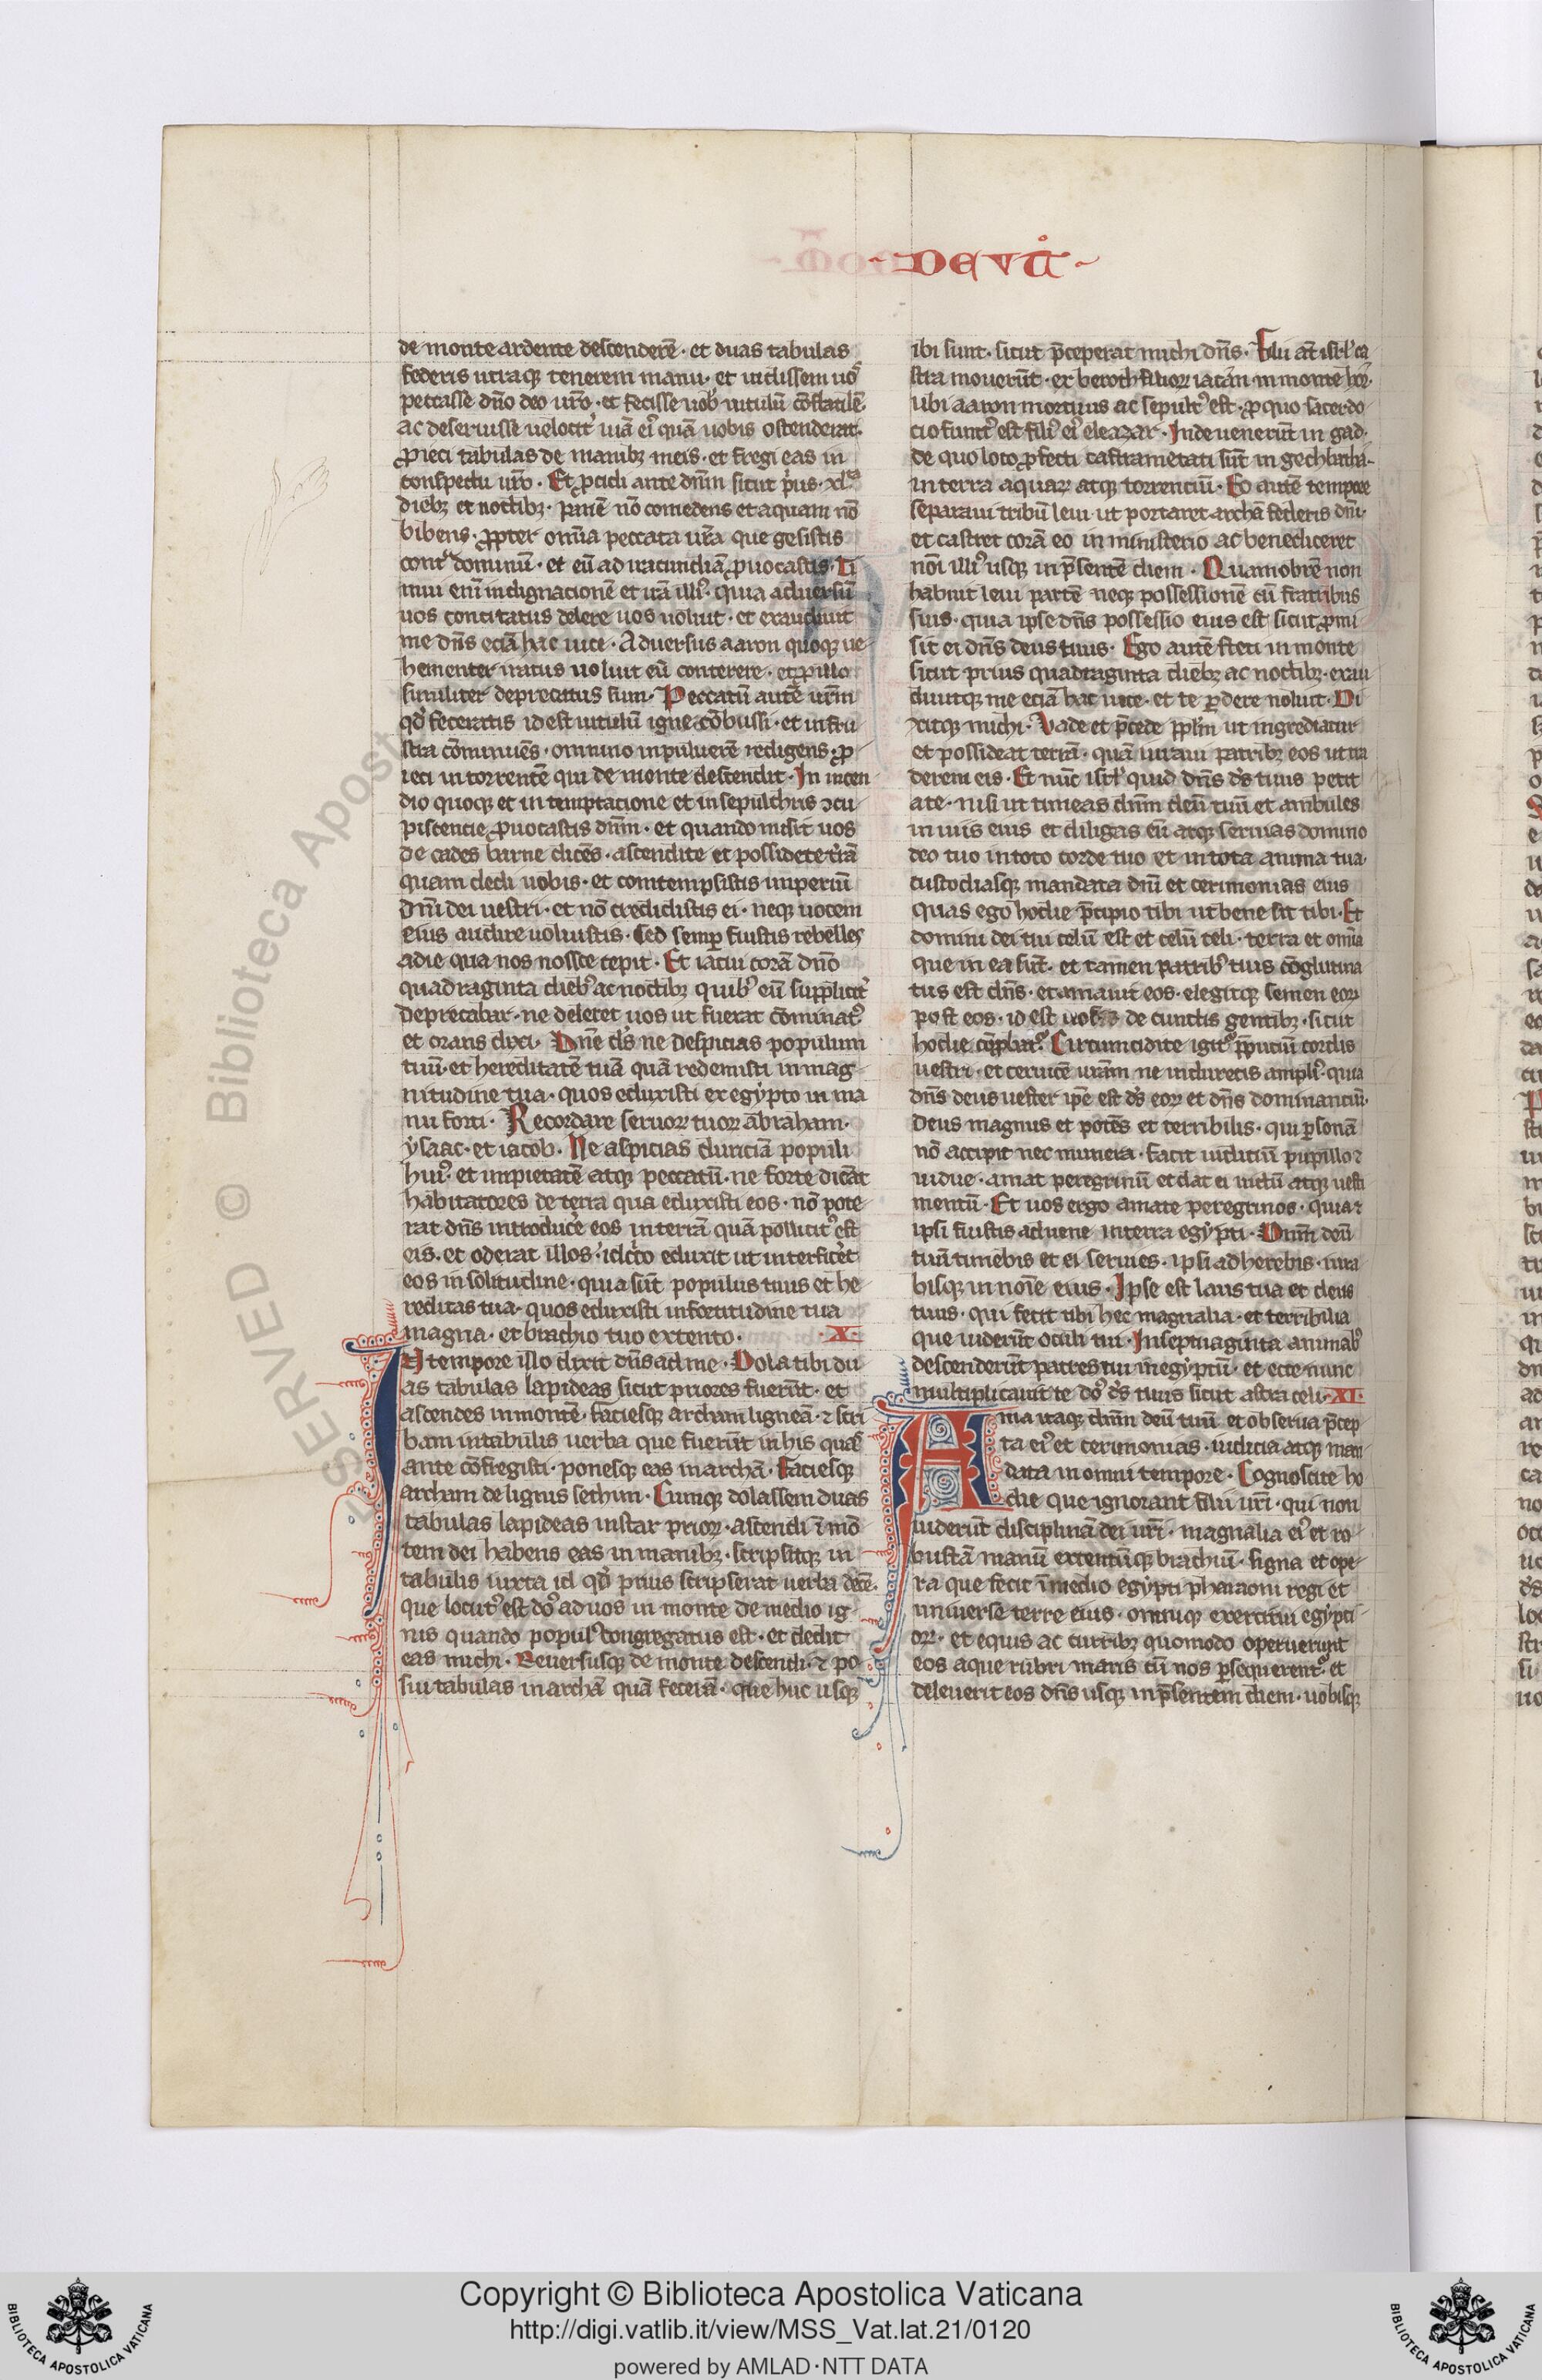 DEUT̊
de monte ardente descenderē · et duas tabulas
federis utraqꝫ tenerem manu · et uidissem uos
peccasse dn̄o deo ur̄o · et fecisse uob̕ uitulū cōflatilē ·
ac deseruisse uelocit̕ uiā eiꝰ quā uobis ostenderat ·
ꝓieci tabulas de manibꝫ meis · et fregi eas in
conspectu ur̄o · Et ꝓcidi ante dn̄m sicut p̕us · xlta
diebꝫ et noctibꝫ · panē nō comedens et aquam nō
bibens · ꝓpter omīa peccata ur̄a que gesistis
contᵃ dominū · et eū ad iracundiā ꝓuocastis · Ti
mui enī indignacionē et irā illiꝰ · quia aduersū
uos concitatus delere uos uoluit · et exaudiuit
me dn̄s eciā hac uice · Aduersus aaron quoqꝫ ue
hementer iratus uoluit eū conterere · et ꝓ illo
similiter deprecatus sum · Peccatū autē ur̄m
qd̕ feceratis id est uitulū igne cōbussi · et in fru
stra cōminuēs · omnino in puluerē redigens · ꝓ
ieci in torrentē qui de monte descendit · In incen
dio quoqꝫ et in temptacione et in sepulchris ↄcu
piscencie ꝓuocastis dn̄m · et quando misit uos
de cades barne dicēs · ascendite et possidete t̕rā
quam dedi uobis · et comtempsistis imperiū
dn̄i dei uestri · et nō credidistis ei · neqꝫ uocem
eius audire uoluistis · Sed semꝑ fuistis rebelles
a die qua nos nossce cepit · Et iacui corā dn̄o
quadraginta diebꝰ ac noctibꝫ quibꝰ eū supplicit̕
deprecabar · ne deleret uos ut fuerat cōminatꝰ
et orans dixi · Dn̄e d̕s ne despicias populum
tuū · et hereditatē tuā quā redemisti in mag
nitudine tua · quos eduxisti ex egypto in ma
nu forti · Recordare seruoꝝ tuoꝝ abraham ·
ysaac · et iacob · Ne aspicias duriciā populi
huiꝰ · et impietatē atqꝫ peccatū · ne forte dicāt
habitatores de terra qua eduxisti eos · nō pote
rat dn̄s introduce̕ eos in terrā quā pollicitꝰ est
eis · et oderat illos · idcͥco eduxit ut interfice̕t
eos in solitudine · quia sūt populus tuus et he
reditas tua · quos eduxisti in fortitudine tua
magna · et brachio tuo extento · X ·
IN tempore illo dixit dn̄s ad me · Dola tibi du
as tabulas lapideas sicut priores fuerūt · et
ascendes in montē · faciesqꝫ archam ligneā · ⁊ scri
bam in tabulis uerba que fuerūt in his quas
ante cōfregisti · ponesqꝫ eas in archā · Faciesqꝫ
archam de lignis sethim · Cumqꝫ dolassem duas
tabulas lapideas instar prioꝝ · ascendi ī mō
tem dei habens eas in manibꝫ · scripsitqꝫ in
tabulis iuxta id qd̕ prius scripserat uerba decē ·
que locutꝰ est dō ad uos in monte de medio ig
nis quando populꝰ congregatus est · et dedit
eas michi · Reuersusqꝫ de monte descendi · ⁊ po
sui tabulas in archā quā fecerā · que huc usqꝫ
ibi sunt · sicut p̄ceperat michi dn̄s · Filii aūt isrl̕ ca
stra mouerūt · ex beroth filioꝝ iacan in monte
ubi aaron mortuus ac sepultꝰ est · ꝓ quo sacerdo
cio functꝰ est filiꝰ eiꝰ eleazar · Inde uenerūt in gad ·
de quo loco ꝓfecti castrametati sūt in gechbatha ·
in terra aquaꝝ atqꝫ torrenciū · Eo autē tempore
separaui tribū leui · ut portaret archā federis dn̄i ·
et castret corā eo in ministerio ac benediceret
nōi illiꝰ usqꝫ in p̄sentē diem · Quamobrē non
habuit leui partē neqꝫ possessionē cū fratribus
suis · quia ipse dn̄s possessio eius est sicut ꝓmi
sit ei dn̄s deus tuus · Ego autē steti in monte
sicut prius quadraginta diebꝫ ac noctibꝫ · exau
diuitqꝫ me eciā hac uice · et te ꝑdere noluit · Di
xitqꝫ michi · Vade et p̄cede ppl̄m ut ingrediatur
et possideat terrā · quā iuraui patribꝫ eos ut tra
derem eis · Et nūc isrl̕ quid dn̄s d̕s tuus petit
a te · nisi ut timeas dn̄m deū tuū et ambules
in uiis eius et diligas eū atqꝫ seruias domino
deo tuo in toto corde tuo et in tota anima tua ·
custodiasqꝫ mandata dn̄i et cerimonias eius
quas ego hodie p̄cipio tibi ut bene sit tibi · Et
domini dei tui celū est et celū celi · terra et omīa
que in ea sūt · et tamen patribꝰ tuis cōglutina
tus est dn̄s · et amauit eos · elegitqꝫ semen eoꝝ
post eos · id est uos de cunctis gentibꝫ · sicut
hodie cōꝓbat̉ · Circumcidite igit̉ p̄puciū cordis
uestri · et ceruicē ur̄am ne induretis ampliꝰ · quia
dn̄s deus uester ip̄e est d̕s eoꝝ et dn̄s dominanciū ·
Deus magnus et potēs et terribilis · qui ꝑsonā
nō accipit nec munera · facit iudiciū pupillo ⁊
uidue · amat peregrinū et dat ei uictū atqꝫ uesti
mentū · Et uos ergo amate peregrinos · quia ⁊
ipsi fuistis aduene in terra egypti · Dn̄m deū
tuū timebis et ei seruies · ipsi adherebis · iura
bisqꝫ in noīe eius · Ipse est laus tua et deus
tuus · qui fecit tibi hec magnalia · et terribilia
que uiderūt oculi tui · In septuaginta animabꝰ
descenderūt patres tui in egyptū · et ecce nunc
multiplicauit te dō d̕s tuus sicut astra celi · XI ·
Ama itaqꝫ dn̄m deū tuū · et obserua p̄cep
ta eiꝰ et cerimonias · iudicia atqꝫ man
data in omni tempore · Cognoscite ho
die que ignorant filii ur̄i · qui non
uiderūt disciplinā dei ur̄i · magnalia eiꝰ et ro
bustā manū extentūqꝫ brachiū · signa et ope
ra que fecit ī medio egypti pharaoni regi et
uniuerse terre eius · omniqꝫ exercitui egypci
oꝝ · et equis ac curribꝫ quomodo operuerunt
eos aque rubri maris cū nos ꝑsequerent̉ · et
deleuerit eos dn̄s usqꝫ in p̄sentem diem · uobisqꝫ
Copyright © Biblioteca Apostolica Vaticana
http://digi.vatlib.it/view/MSS_Vat.lat.21/0120
powered by AMLAD·NTT DATA
BIBLIOTECA APOSTOLICA VATICANA
BIBLIOTECA APOSTOLICA VATICANA